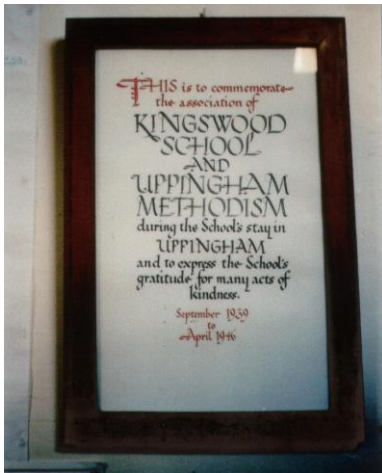 THIS is to commemorate
the association of
KINGSWOOD
SCHOOL
AND
UPPINGHAM
METHODISM
during the School's stay in
UPPINGHAM
and to express the School's
gratitude for many acts of
kindness.
September 1939
to
April 1946